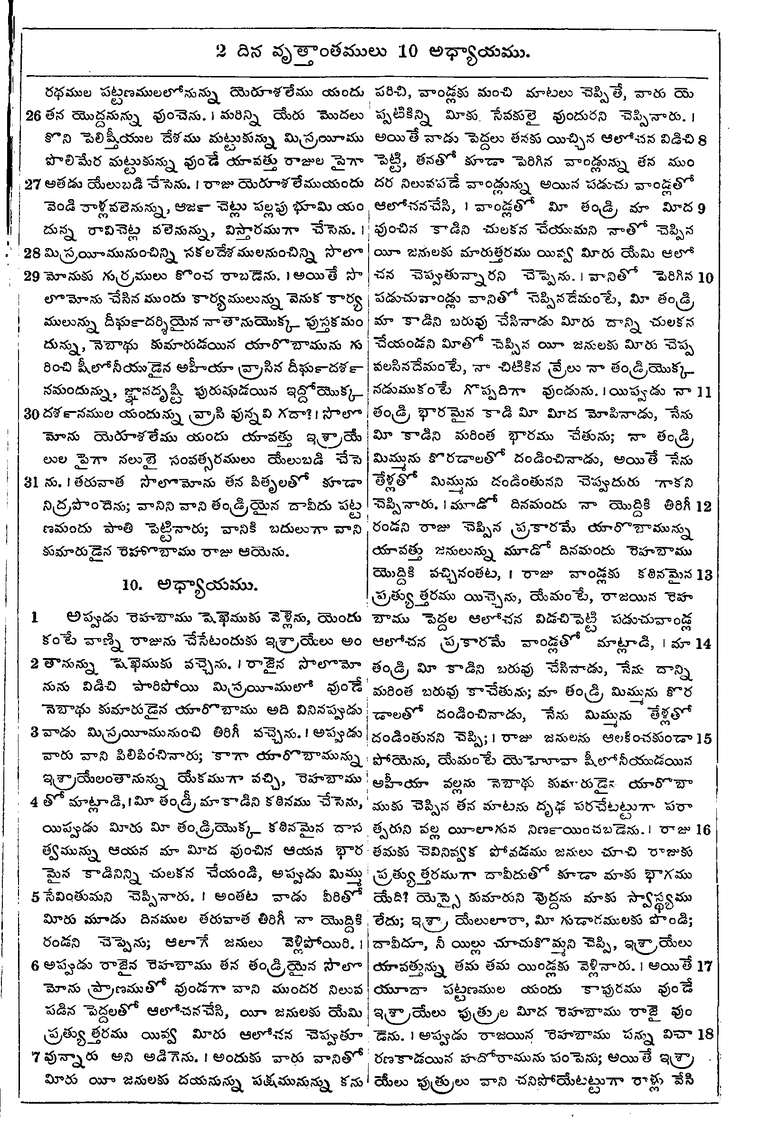 2 దిన వృత్తాంతములు 10 అధ్యాయము.
రథముల పట్టణములలోనున్ను యెరూశలేము యందు
26 తన యొద్దనున్ను వుంచెను. । మరిన్ని యేరు మొదలు
కొని పెలిష్తీయుల దేశము మట్టుకున్ను మిస్రయీము
పొలిమేర మట్టుకున్ను వుండే యావత్తు రాజుల పైగా
27 అతడు యేలుబడి చేసెను. । రాజు యెరూశలేముయందు
వెండి రాళ్లవలెనున్ను, ఆజ౯ చెట్లు పల్లపు భూమి యం
దున్న రావిచెట్ల వలెనున్ను, విస్తారముగా చేసెను. ।
28 మిస్రయీమునుంచిన్ని సకలదేశములనుంచిన్ని సొలొ
29 మోనుకు గుర్రములు కొంచ రాబడెను. । అయితే సొ
లొమోను చేసిన ముందు కార్యములున్ను వెనుక కార్య
ములున్ను దీఘ౯దర్శియైన నాతానుయొక్క పుస్తకమం
దున్ను, నెబాథు కుమారుడయిన యారొబామును గు
రించి షీలోనీయుడైన అహీయా వ్రాసిన దీఘ౯దశ౯
నమందున్ను, జ్ఞానదృష్టి పురుషుడయిన ఇద్దోయొక్క
30 దశ౯నముల యందున్ను వ్రాసి వున్నవి గదా? । సొలొ
మోను యెరూశలేము యందు యావత్తు ఇశ్రాయే
లుల పైగా నలుభై సంవత్సరములు యేలుబడి చేసె
31 ను. । తరువాత సొలొమోను తన పితృలతో కూడా
నిద్రపొందెను; వానిని వాని తండ్రియైన దావీదు పట్ట
ణమందు పాతి పెట్టినారు; వానికి బదులుగా వాని
కుమారుడైన రెహాబాము రాజు ఆయెను.
10. అధ్యాయము.
1 అప్పుడు రెహబాము షెఖెముకు వెళ్లెను, యెందు
కంటే వాణ్ని రాజును చేసేటందుకు ఇశ్రాయేలు అం
2 తానున్ను షెఖెముకు వచ్చెను. । రాజైన సొలొమో
నును విడిచి పారిపోయి మిస్రయీములో వుండే
నెబాథు కుమారుడైన యారొబాము అది వినినప్పుడు
3 వాడు మిస్రయీమునుంచి తిరిగీ వచ్చెను. । అప్పుడు
వారు వాని పిలిపించినారు; కాగా యారొబామున్ను
ఇశ్రాయేలంతానున్ను యేకముగా వచ్చి, రెహబాము
4 తో మాట్లాడి, । మీ తండ్రీ మా కాడిని కఠినము చేసెను,
యిప్పుడు మీరు మీ తండ్రియొక్క కఠినమైన దాస
త్వమున్ను ఆయన మా మీద వుంచిన ఆయన భార
మైన కాడినిన్ని చులకన చేయండి, అప్పుడు మిమ్ము
5 సేవింతుమని చెప్పినారు. । అంతట వాడు వీరితో
మీరు మూడు దినముల తరువాత తిరిగీ నా యొద్దికి
రండని చెప్పెను; ఆలాగే జనులు వెళ్లిపోయిరి. ।
6 అప్పుడు రాజైన రెహబాము తన తండ్రియైన సొలొ
మోను ప్రాణముతో వుండగా వాని ముందర నిలువ
పడిన పెద్దలతో ఆలోచనచేసి, యీ జనులకు యేమి
ప్రత్యుత్తరము యివ్వ మీరు ఆలోచన చెప్పుతూ
7 వున్నారు అని అడిగెను. । అందుకు వారు వానితో
మీరు యీ జనులకు దయనున్ను పక్షమునున్ను కను
పరిచి, వాండ్లకు మంచి మాటలు చెప్పితే, వారు యె
ప్పటికిన్ని మీకు సేవకులై వుందురని చెప్పినారు. ।
అయితే వాడు పెద్దలు తనకు యిచ్చిన ఆలోచన విడిచి 8
పెట్టి, తనతో కూడా పెరిగిన వాండ్లున్ను తన ముం
దర నిలువపడే వాండ్లున్ను అయిన పడుచు వాండ్లతో
ఆలోచనచేసి, । వాండ్లతో మీ తండ్రి మా మీద 9
వుంచిన కాడిని చులకన చేయుమని నాతో చెప్పిన
యీ జనులకు మారుత్తరము యివ్వ మీరు యేమి ఆలో
చన చెప్పుతున్నారని చెప్పెను. । వానితో పెరిగిన 10
పడుచువాండ్లు వానితో చెప్పినదేమంటే, మీ తండ్రి
మా కాడిని బరువు చేసినాడు మీరు దాన్ని చులకన
చేయండని మీతో చెప్పిన యీ జనులకు మీరు చెప్ప
వలసినదేమంటే, నా చిటికిన వ్రేలు నా తండ్రియొక్క
నడుముకంటే గొప్పదిగా వుండును. । యిప్పుడు నా 11
తండ్రి భారమైన కాడి మీ మీద మోపినాడు, నేను
మీ కాడిని మరింత భారము చేతును; నా తండ్రి
మిమ్మును కొరడాలతో దండించినాడు, అయితే నేను
తేళ్లతో మిమ్మును దండింతునని చెప్పుదురు గాకని
చెప్పినారు. । మూడో దినమందు నా యొద్దికి తిరిగీ 12
రండని రాజు చెప్పిన ప్రకారమే యారొబామున్ను
యావత్తు జనులున్ను మూడో దినమందు రెహబాము
యొద్దికి వచ్చినంతట, । రాజు వాండ్లకు కఠినమైన 13
ప్రత్యుత్తరము యిచ్చెను, యేమంటే, రాజయిన రెహ
బాము పెద్దల ఆలోచన విడచిపెట్టి పడుచువాండ్ల
ఆలోచన ప్రకారమే వాండ్లతో మాట్లాడి, । మా 14
తండ్రి మీ కాడిని బరువు చేసినాడు, నేను దాన్ని
మరింత బరువు కాచేతును; మా తండ్రి మిమ్మును కొర
డాలతో దండించినాడు, నేను మిమ్మును తేళ్లతో
దండింతునని చెప్పి; । రాజు జనులను ఆలకించకుండా 15
పోయెను, యేమంటే యెహోవా షీలోనీయుడయిన
అహీయా వల్లను నెబాథు కుమారుడైన యారొబా
ముకు చెప్పిన తన మాటను దృఢ పరచేటట్టుగా పరా
త్పరుని వల్ల యీలాగున నిణ౯యించబడెను. । రాజు 16
తమకు చెవినివ్వక పోవడము జనులు చూచి రాజుకు
ప్రత్యుత్తరముగా దావీదుతో కూడా మాకు భాగము
యేది? యెస్సై కుమారుని వుద్దను మాకు స్వాస్థ్యము
లేదు; ఇశ్రాయేలులారా, మీ గుడారములకు పొండి;
దావీదూ, నీ యిల్లు చూచుకొమ్మని చెప్పి, ఇశ్రాయేలు
యావత్తున్ను తమ తమ యిండ్లకు వెళ్లినారు. । అయితే 17
యూదా పట్టణముల యందు కాపురము వుండే
ఇశ్రాయేలు పుత్రుల మీద రెహబాము రాజై వుం
డెను. । అప్పుడు రాజయిన రెహబాము పన్ను విచా 18
రణకాడయిన హదోరామును పంపెను; అయితే ఇశ్రా
యేలు పుత్రులు వాని చనిపోయేటట్టుగా రాళ్లు వేసి